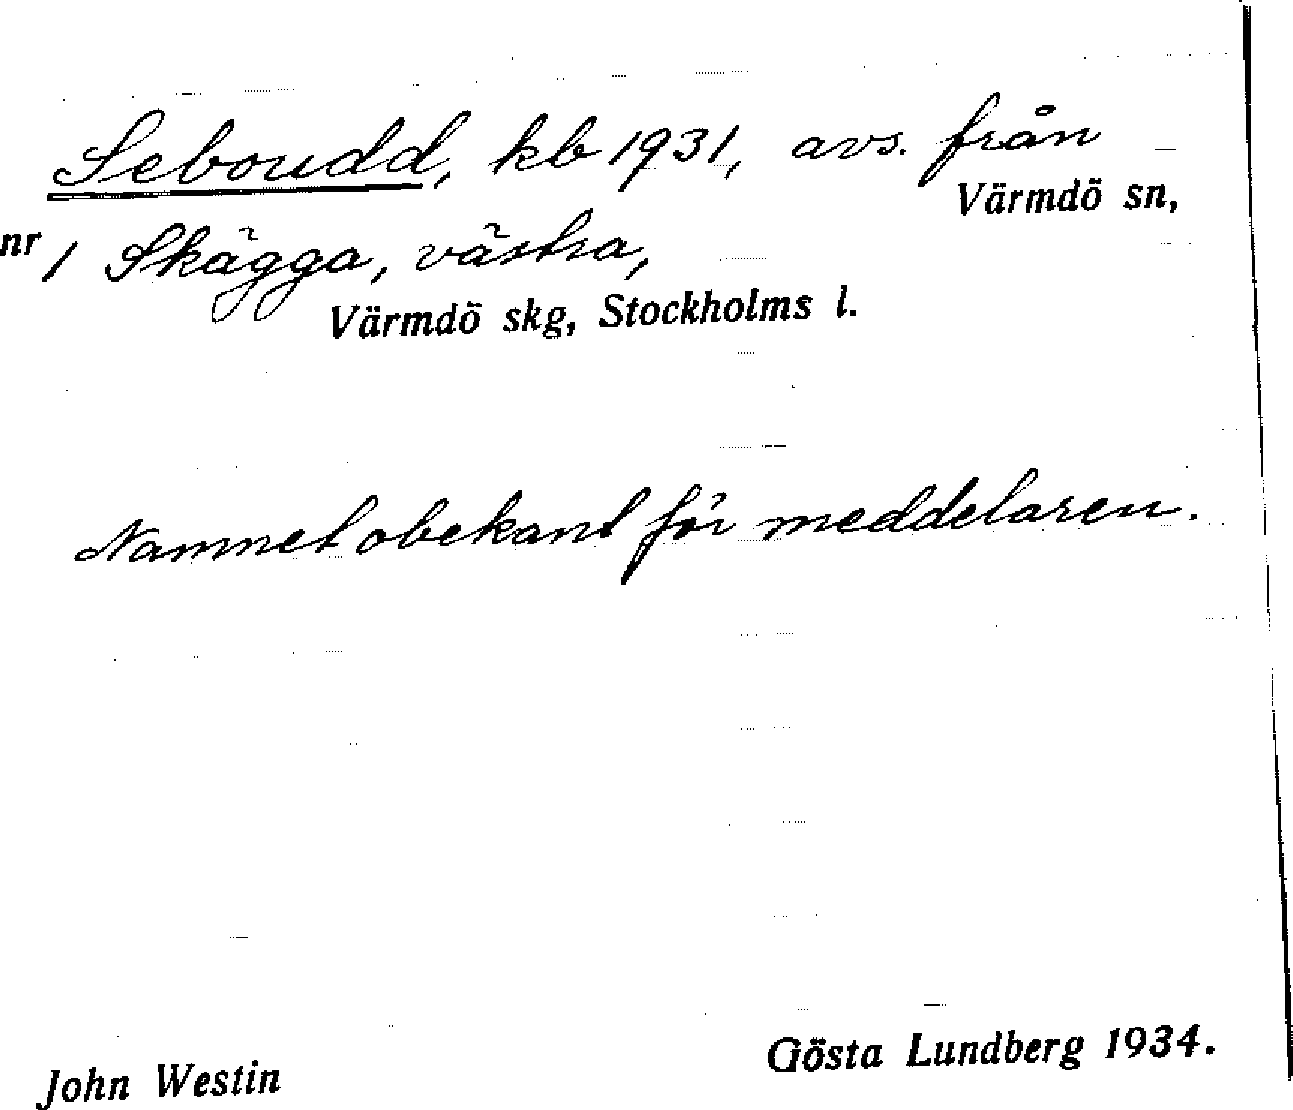 Seboudd, kb 1931, avs. från
Värmdö sn,
nr 1 Skägga, västra,
Värmdö skg, Stockholms l.
Namnet obekant för meddelaren.
John Westin
Gösta Lundberg 1934.